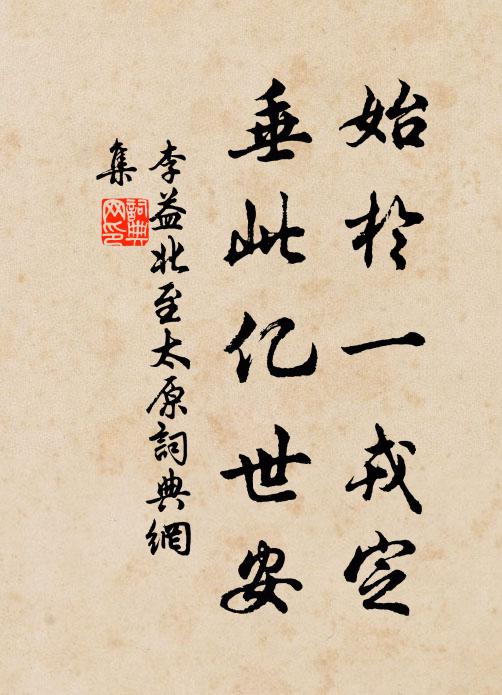 始於一戎定
垂此亿世安
李益北至太原詞典網
集
詞典網印